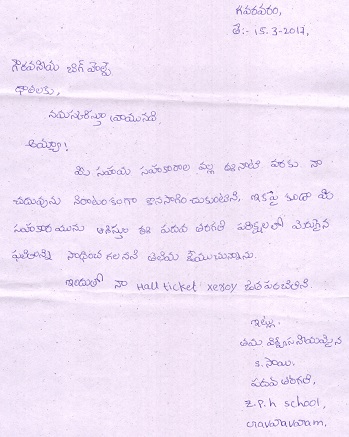 గవరవరం,
తే:- 15-3-2017,
గౌరవనీయ బిగ్ హెల్ప్
దాతలకు,
నమస్కరిస్తూ వ్రాయునది.
అయ్యా!
మీ సహాయ సహకారాల వల్ల ఈనాటి వరకు నా
చదువును నిరాటంకంగా కొనసాగించుకుంటిని, ఇకపై కూడా మీ
సహకారమును ఆశిస్తూ ఈ పదవ తరగతి పరీక్షలలో మెరుగైన
ఫలితాన్ని సాధించ గలనని తెలియ జేయుచున్నాను.
ఇందుతో నా Hall ticket xeroy జతపరచితిని.
ఇట్లు,
తమ విశ్వసనీయమైన
S. సాయి.
పదవ తరగతి,
Z.P.h school,
Gravaravaram.